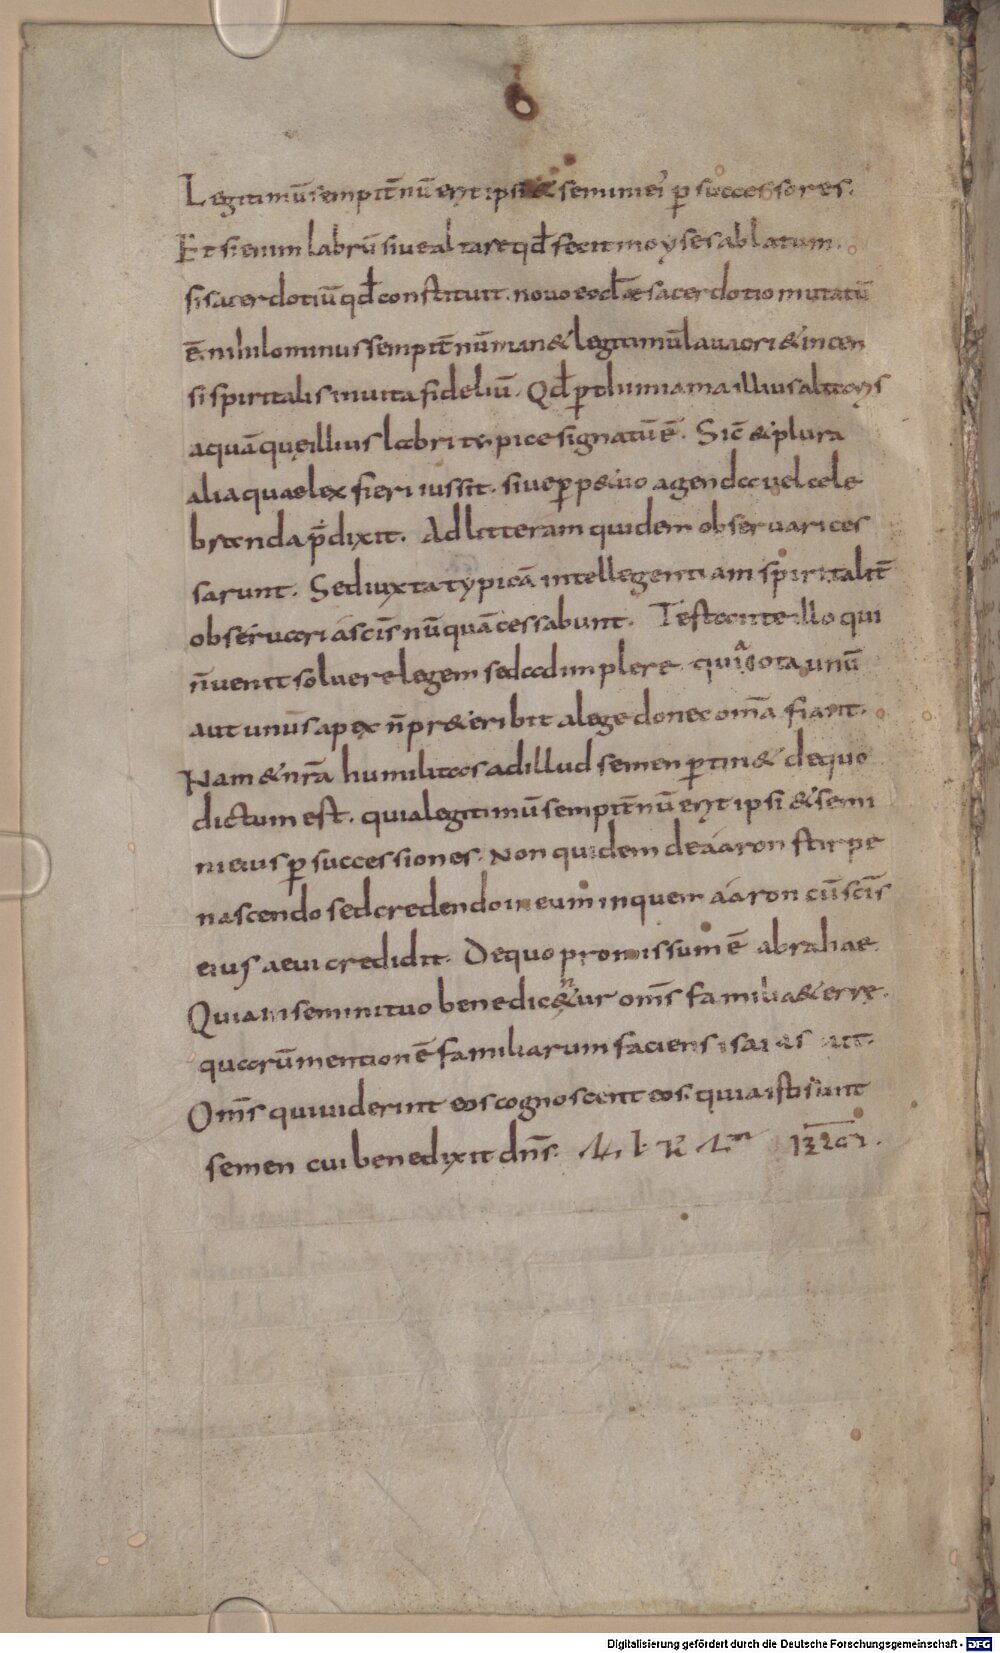 Legitimū sempit̄nū erit ipsi & semini ei' ꝑ successores.
Et si enim labrū sive altare qd̄ fecit moyses ablatum.
si sacerdotiū qd̄ constituit. novo eod̄ & sacerdotio mutatū
ē. nihilominus sempit̄nū man& legitimū lavacri & incen
si spiritalis in vita fideliū. Qd̄ ꝑ thimiama illius altaris
aquāque illius labri typice signatū ē. Sic̄ & plura
alia quae lex fieri iussit. sive ꝑp&uo agenda vel cele
branda p̄dixit. Ad litteram quidem observari ces
sarunt. Sed iuxta typicā intellegentiam spiritalit̄
observari a sc̄is nūquā cessabunt. Testante illo qui
n̄ venit solvere legem sed adimplere quia iota unū
aut unus apex n̄ pr&eribit a lege donec om̄a fiant.
Nam & nr̄a humilitas ad illud semen ꝑtin& de quo
dictum est. quia legitimū sempit̄nū erit ipsi & semi
ni eius ꝑ successiones. Non quidem de aaron stirpe
nascendo sed credendo in eum in quem aaron cū sc̄is
eius aevi credidit. De quo promissum ē abrahae
Quia in semine tuo benedic&ur om̄s familiae terre.
quarū mentionē familiarum faciens isaias ait.
Om̄s qui viderint eos cognoscent eos. quia isti sunt
semen cui benedixit dn̄s.